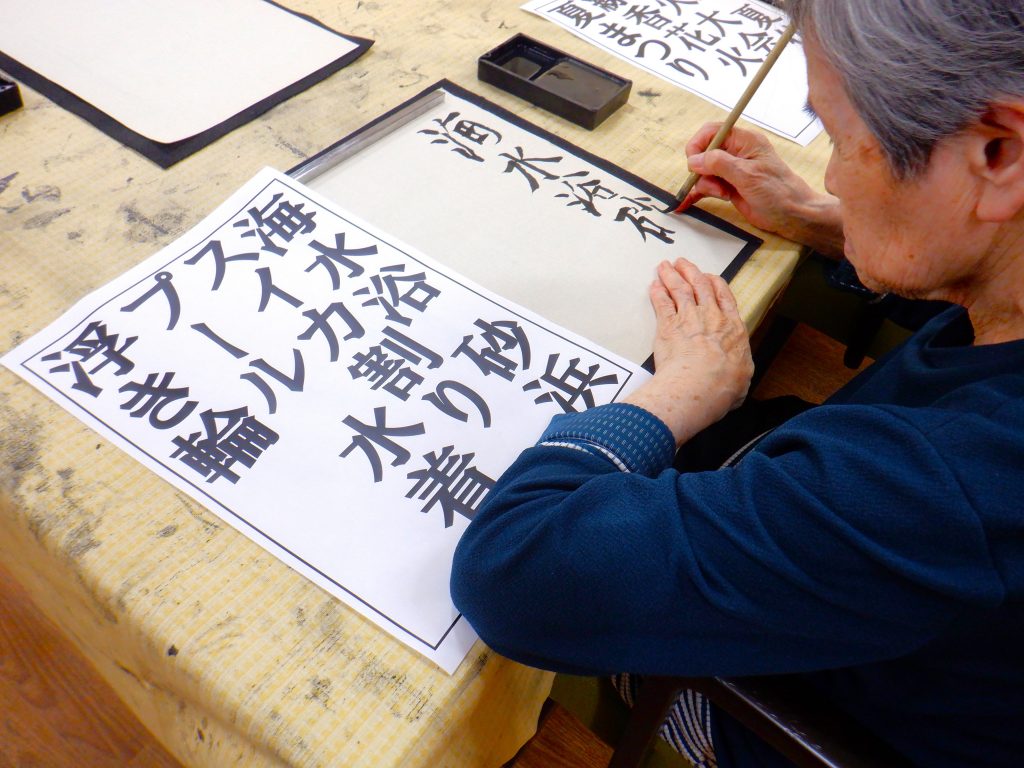 海水浴砂
海水浴 砂浜
スイカ割り
プール 水着
浮き輪
夏
火大会
香花火
夏まつり